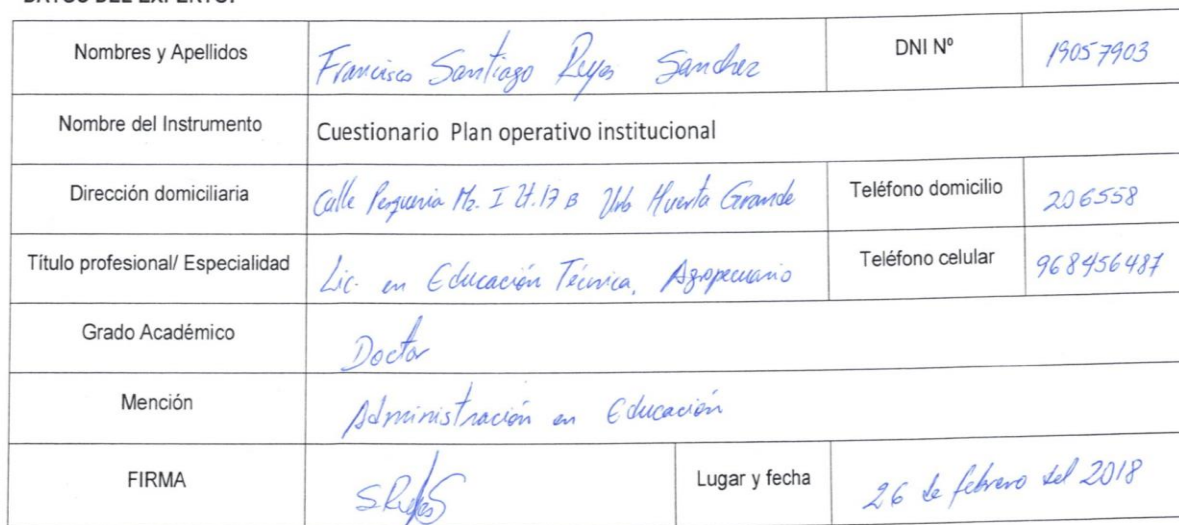 DATOS DEL EXPERTO:
Nombres y Apellidos Francisco Santiago Reyes Sanchez DNI Nº 19057903
Nombre del Instrumento Cuestionario Plan operativo institucional
Dirección domiciliaria Calle Mz. I Lt. 17 B Urb Huerta Grande Teléfono domicilio 206558
Título profesional/ Especialidad Lic. en Educación Técnica, Agropecuario Teléfono celular 968456487
Grado Académico Doctor
Mención Administración en Educación
FIRMA Lugar y fecha 26 de febrero del 2018